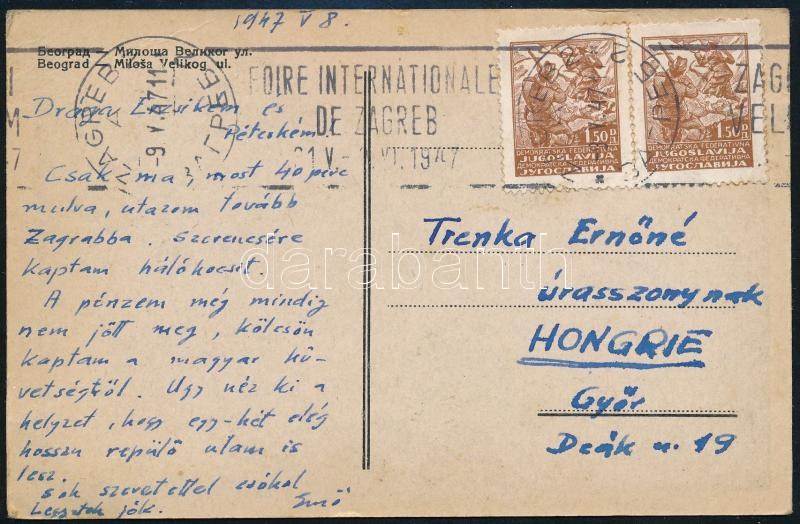 1947 V 8.
Београд – Милоша Великог ул.
Beograd – Miloša Velikog ul.
Drága Erzsikém és
Péterkém!
Csak ma, most 40 perc
mulva, utazom tovább
Zágrábba. Szerencsére
kaptam hálókocsit.
A pénzem még mindig
nem jött meg, kölcsön
kaptam a magyar kö-
vetségtől. Ugy néz ki a
helyzet, hogy egy-két elég
hosszu repülő utam is
lesz.
Sok szeretettel csókol
Legyetek jók. Ernő
FOIRE INTERNATIONALE
DE ZAGREB
1947
ZAGREB
ЗАГРЕБ
1.50
DEMOKRATSKA FEDERATIVNA
JUGOSLAVIJA
ДЕМОКРАТСКА ФЕДЕРАТИВНА
ЈУГОСЛАВИЈА
1.50
DEMOKRATSKA FEDERATIVNA
JUGOSLAVIJA
ДЕМОКРАТСКА ФЕДЕРАТИВНА
ЈУГОСЛАВИЈА
Trenka Ernőné
úrasszonynak
HONGRIE
Győr
Deák u. 19
darabanth